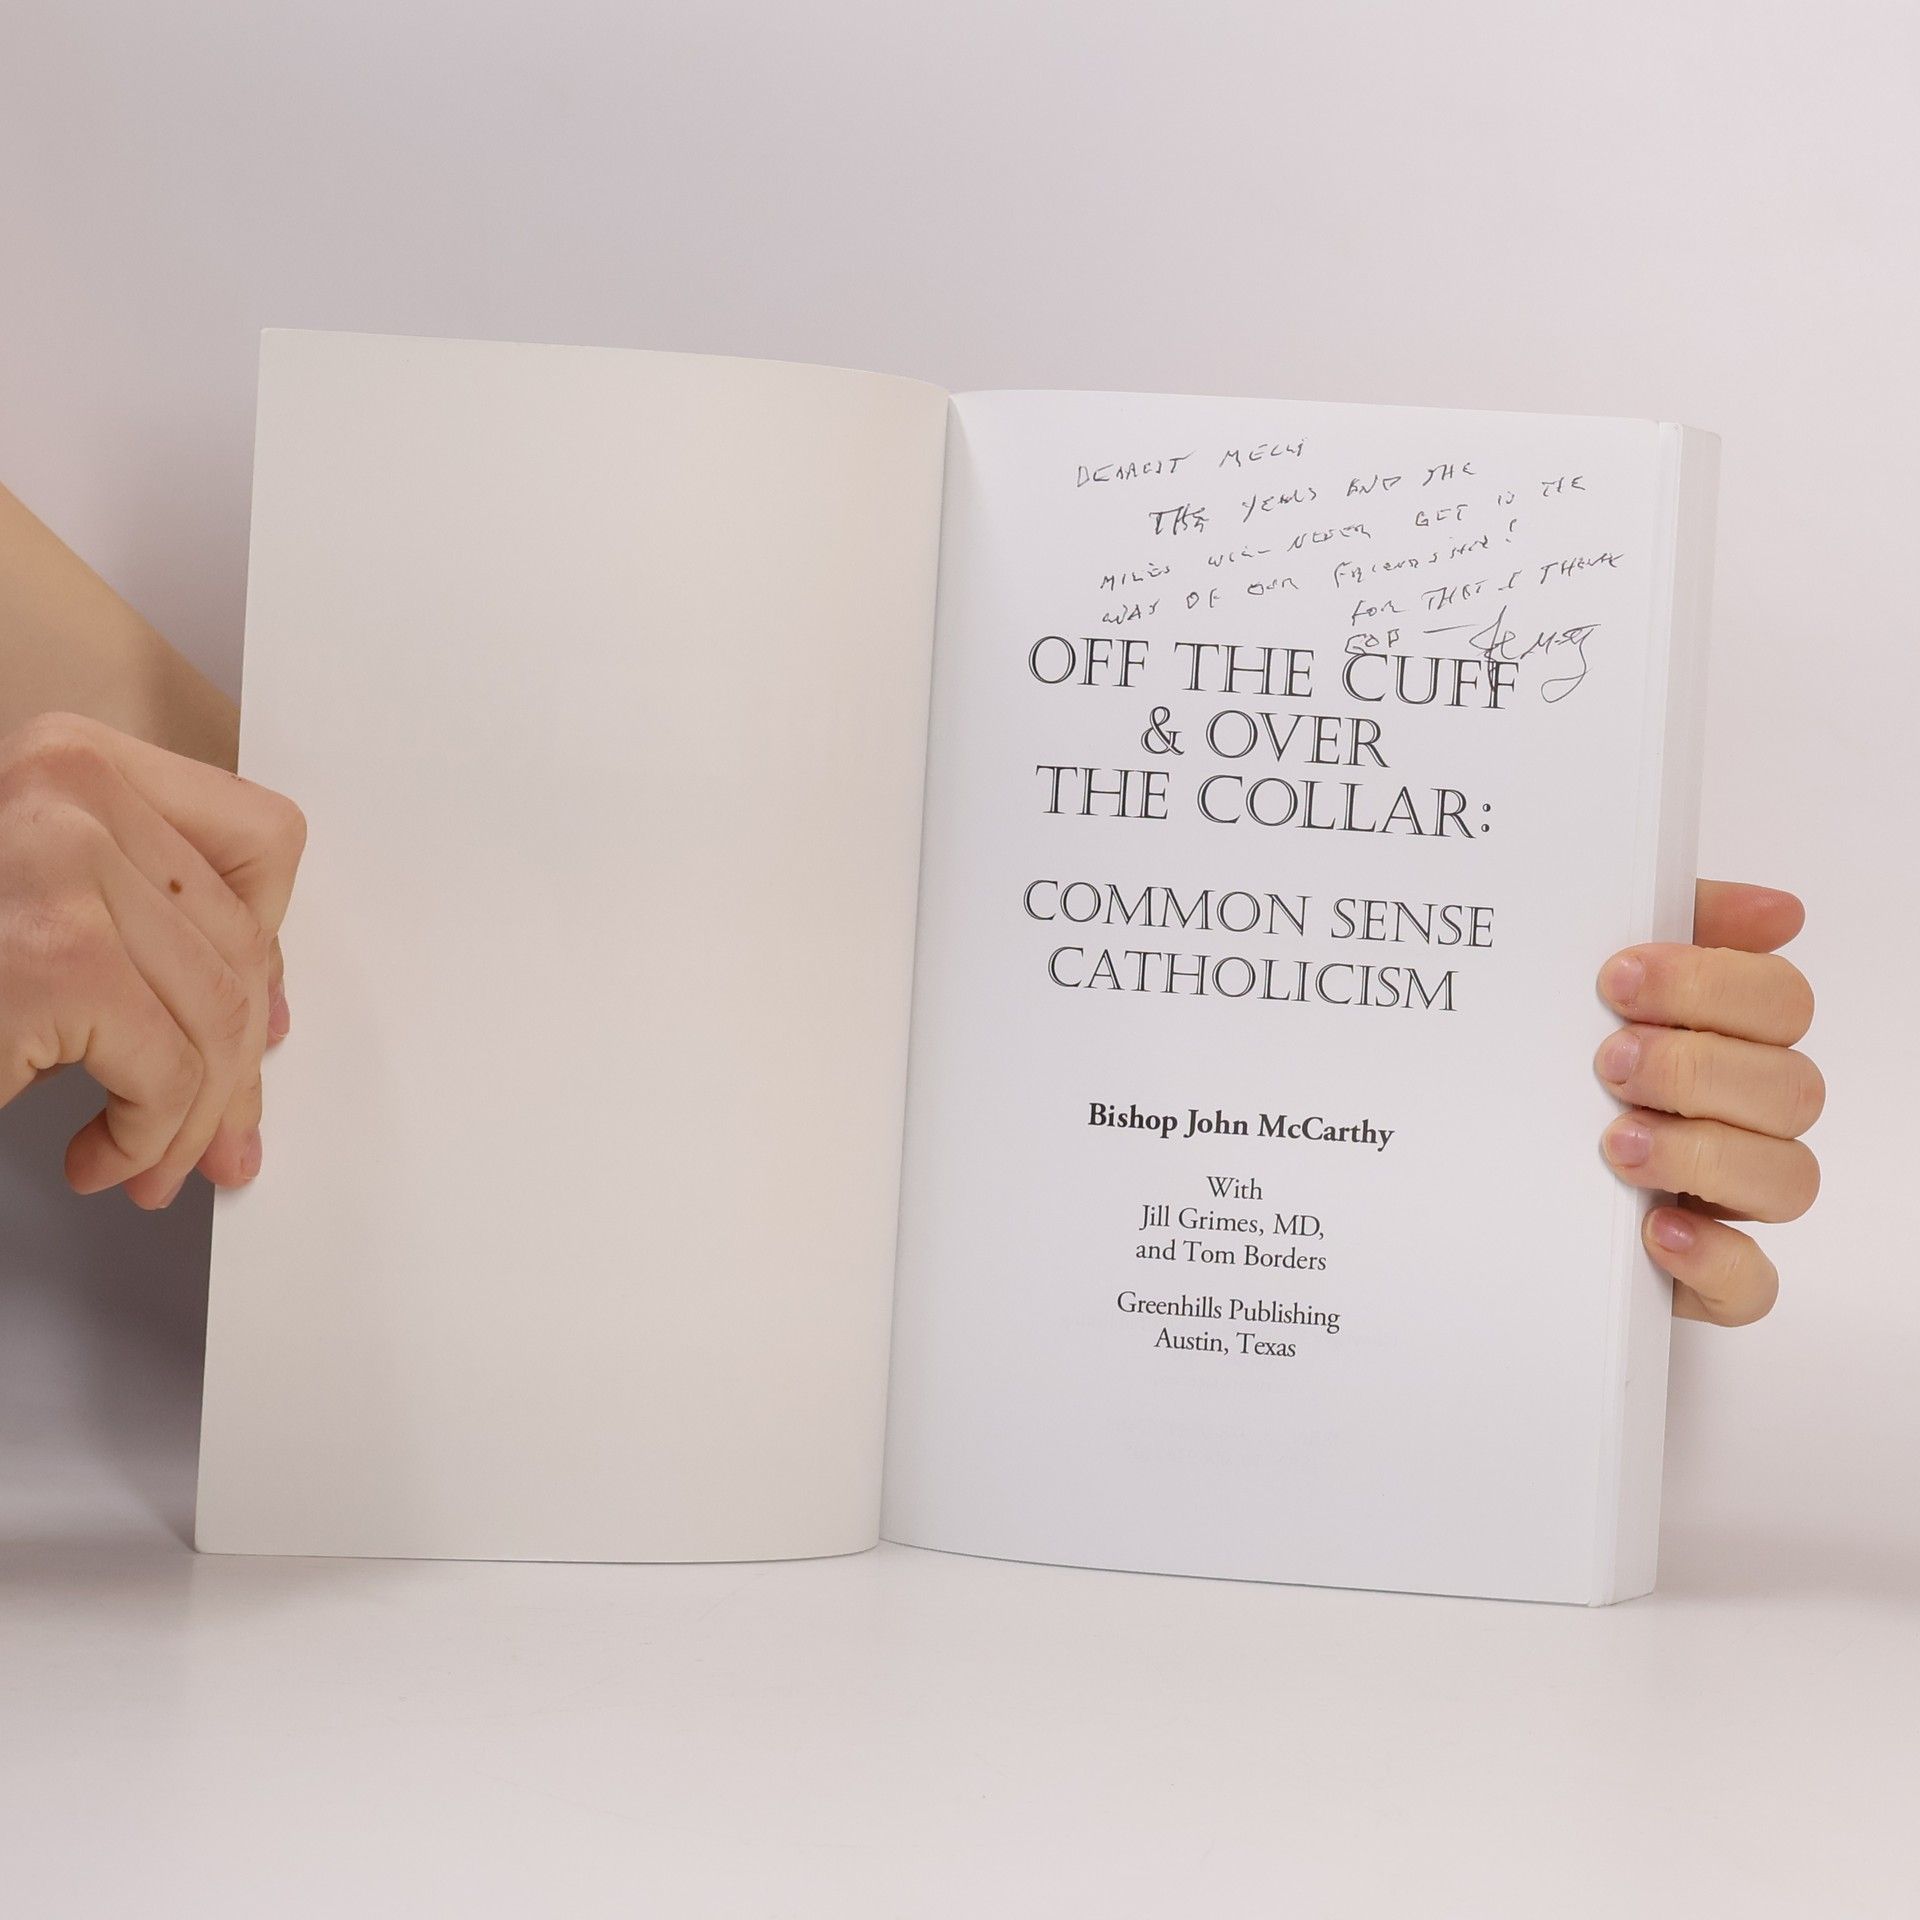 DEAREST
THE YEARS AND THE
MILES WILL NEVER GET IN THE
WAY OF OUR FRIENDSHIP!
FOR THAT I THANK
GOD —
OFF THE CUFF
& OVER
THE COLLAR:
COMMON SENSE
CATHOLICISM
Bishop John McCarthy
With
Jill Grimes, MD,
and Tom Borders
Greenhills Publishing
Austin, Texas